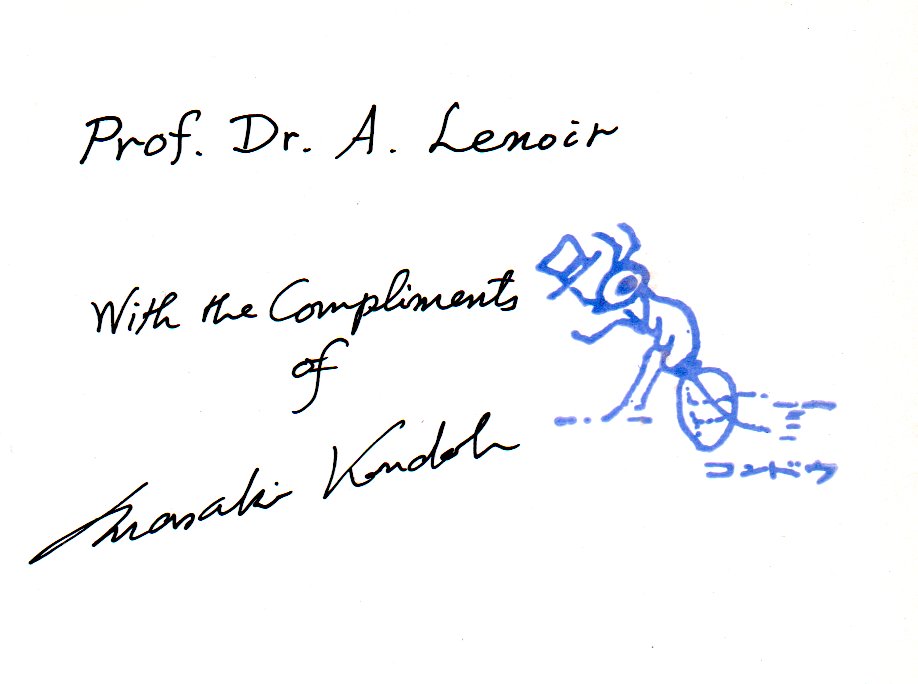 Prof. Dr. A. Lenoir
With the Compliments
of
Masaki Kondoh
コンドウ